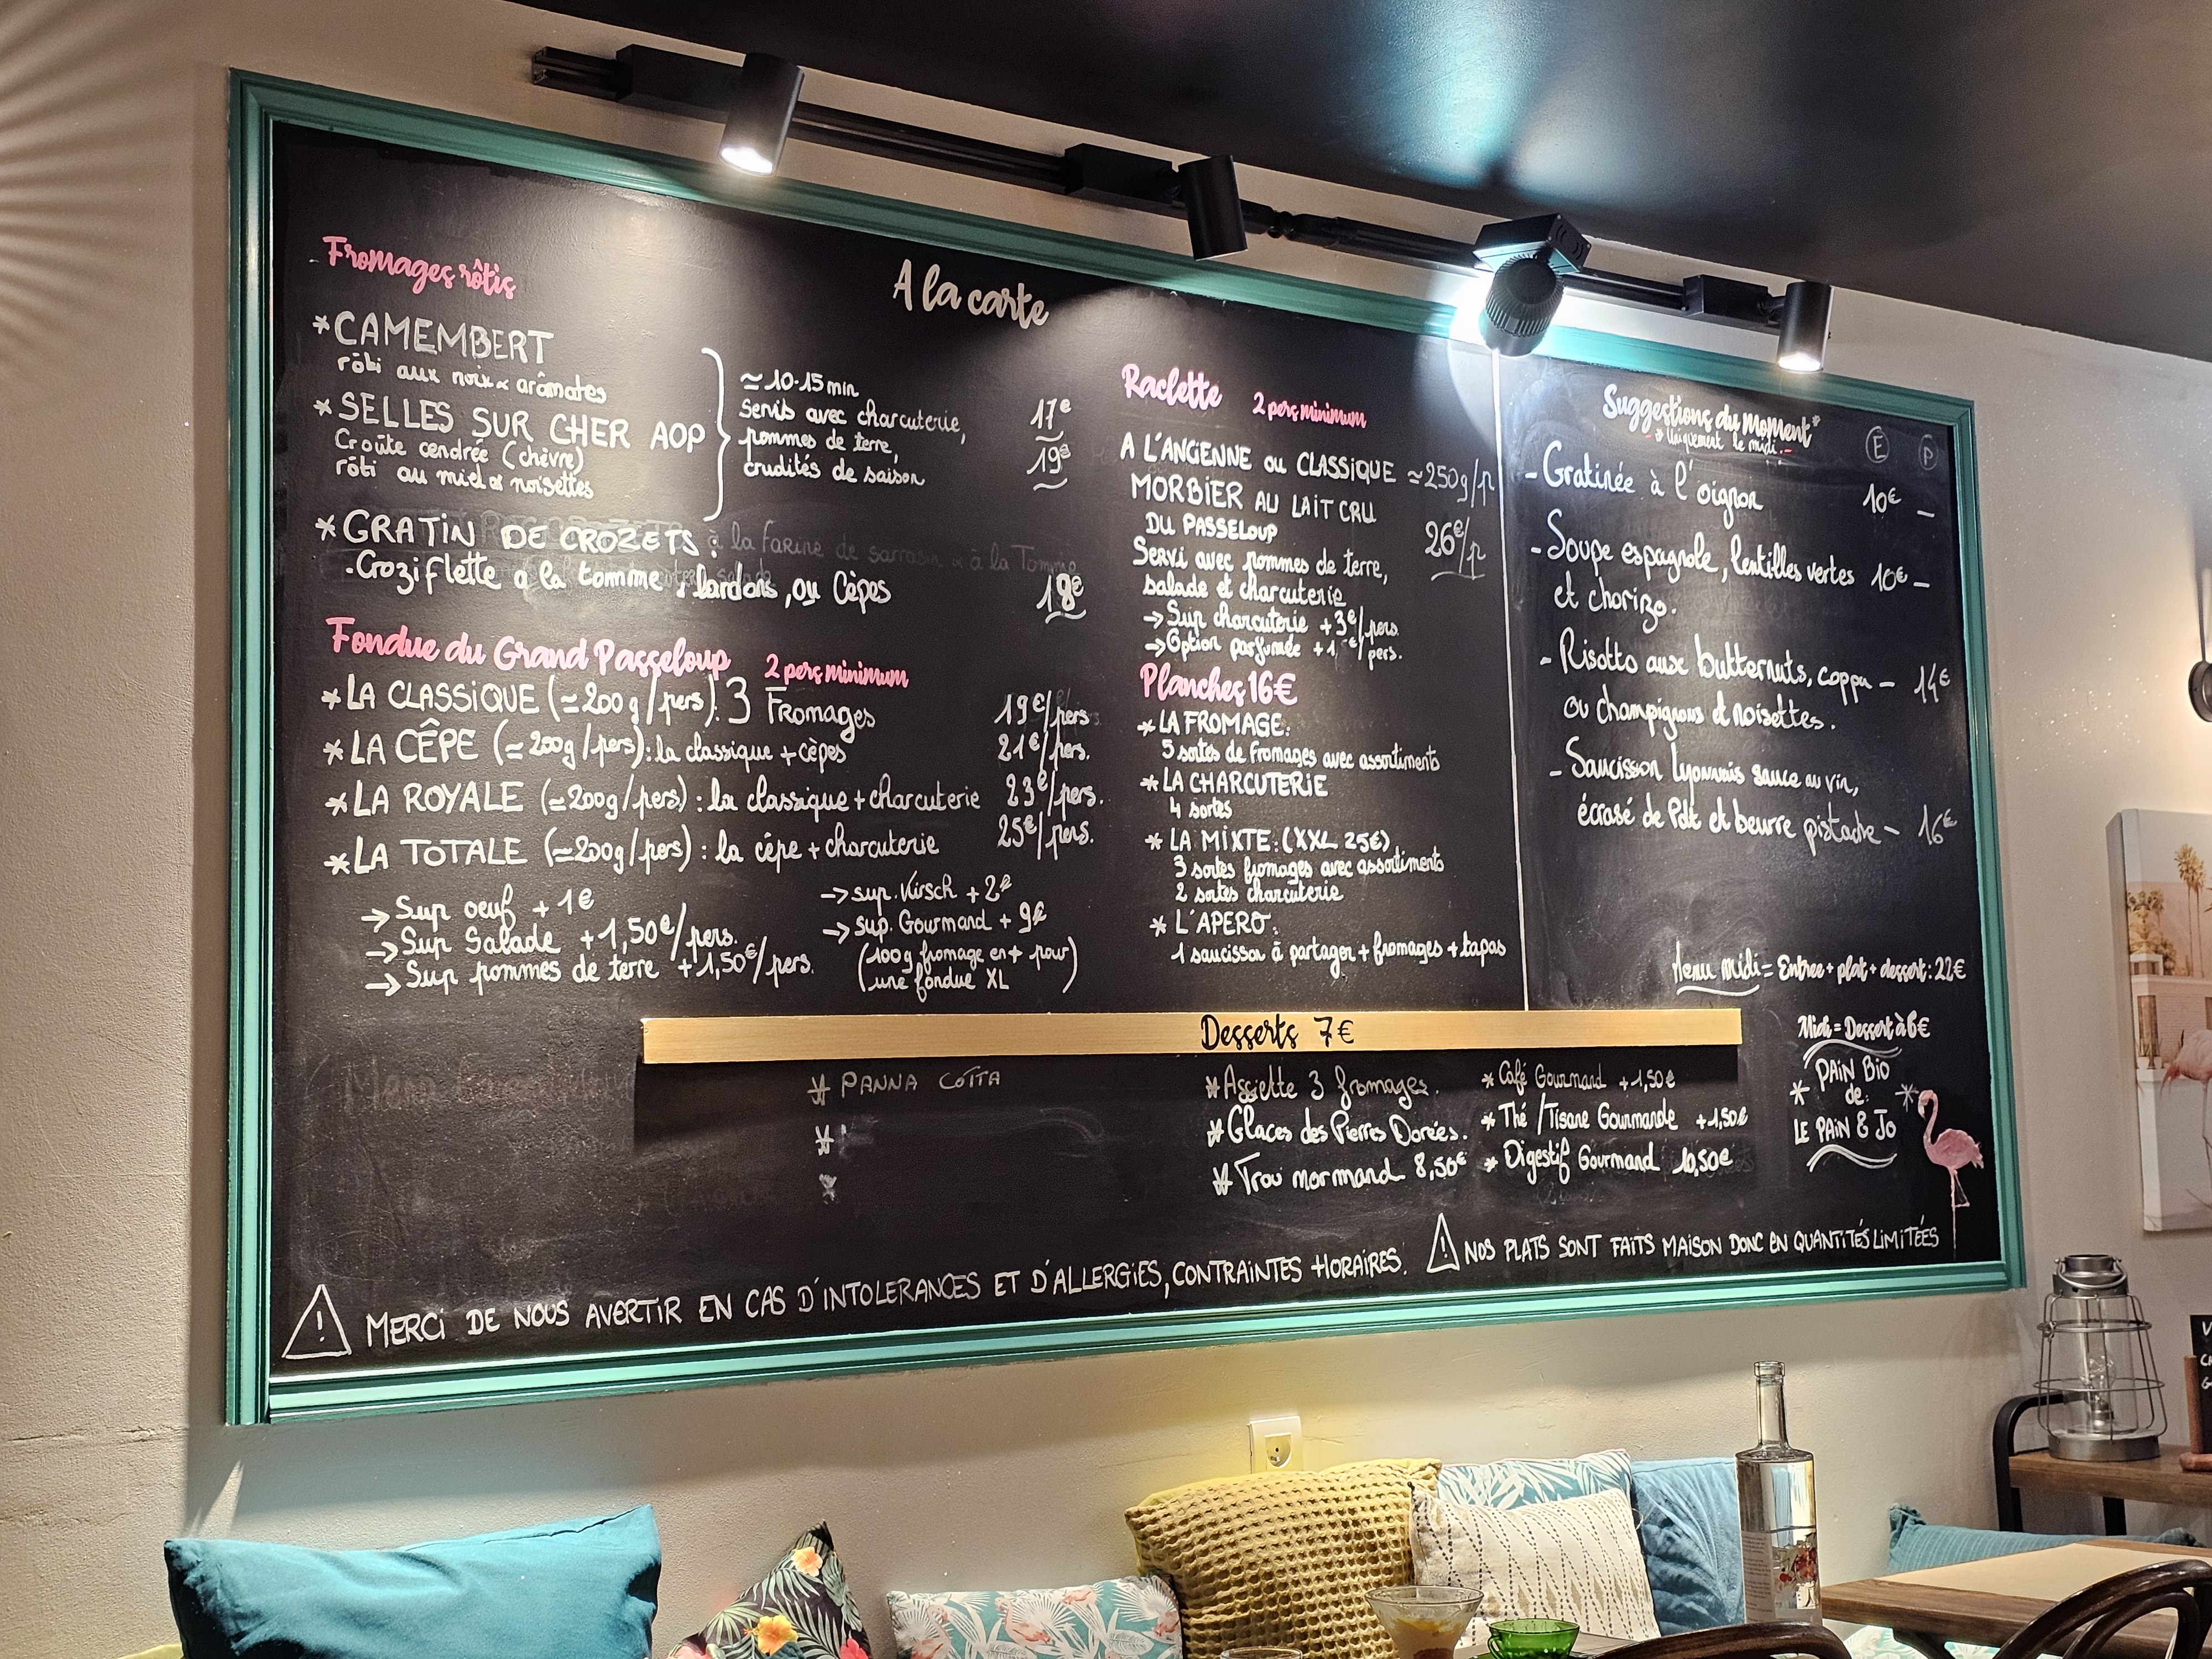 Fromages rôtis
*CAMEMBERT
rôti aux noix & arômates
*SELLES SUR CHER AOP
Croûte cendrée (chèvre)
rôti au miel & noisettes
≃10-15min
Servis avec charcuterie,
pommes de terre,
crudités de saison
17€
19€
*GRATIN DE CROZETS: à la farine de sarrasin & à la Tomme
-Croziflette a la tomme, lardons, ou Cèpes
18€
Fondue du Grand Passeloup 2 pers minimum
*LA CLASSIQUE (≃200g/pers): 3 Fromages 19€/pers
*LA CÊPE (≃200g/pers): la classique + cèpes 21€/pers.
*LA ROYALE (≃200g/pers) : la classique + charcuterie 23€/pers.
*LA TOTALE (≃200g/pers) : la cêpe + charcuterie 25€/pers.
→Sup oeuf + 1€
→Sup Salade +1,50€/pers.
→Sup pommes de terre +1,50€/pers.
→sup. Kirsch + 2€
→sup. Gourmand + 9€
(100g fromage en + pour)
(une fondue XL)
A la carte
Raclette 2 pers minimum
A L'ANCIENNE ou CLASSIQUE ≃250g/p
MORBIER AU LAIT CRU
DU PASSELOUP 26€/p
Servi avec pommes de terre,
salade et charcuterie
→Sup charcuterie +3€/pers.
→Option parfumée +1€/pers.
Planches 16€
*LA FROMAGE:
5 sortes de fromages avec assortiments
*LA CHARCUTERIE
4 sortes
* LA MIXTE: (XXL 25€)
3 sortes fromages avec assortiments
2 sortes charcuterie
* L'APERO:
1 saucisson à partager + fromages + tapas
Suggestions du moment*
*Uniquement le midi.
E P
- Gratinée à l'oignon 10€ -
- Soupe espagnole, lentilles vertes 10€ -
et chorizo.
- Risotto aux butternuts, coppa - 14€
ou champignons et noisettes.
- Saucisson Lyonnais sauce au vin,
écrasé de Pdt et beurre pistache - 16€
Menu midi = Entree + plat + dessert: 22€
Desserts 7€
* PANNA COTTA
*
*
*Assiette 3 fromages.
*Glaces des Pierres Dorées.
*Trou normand 8,50€
* Café Gourmand +1,50€
* Thé /Tisane Gourmande +1,50€
* Digestif Gourmand 10,50€
Midi = Dessert à 6€
PAIN BIO
* de: *
LE PAIN & JO
⚠ MERCI DE NOUS AVERTIR EN CAS D'INTOLERANCES ET D'ALLERGIES, CONTRAINTES HORAIRES.
⚠ NOS PLATS SONT FAITS MAISON DONC EN QUANTITÉS LIMITÉES